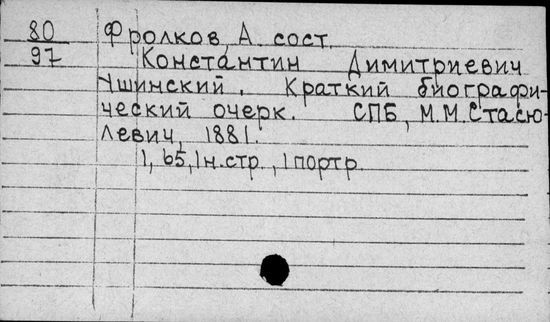 80 Фролков, А. сост.
97 Константин Димитриевич
Ушинский. Краткий биографи-
ческий очерк. СПБ, М.М.Стасю-
левич, 1881.
1, 65, 1 н.стр., 1 портр.